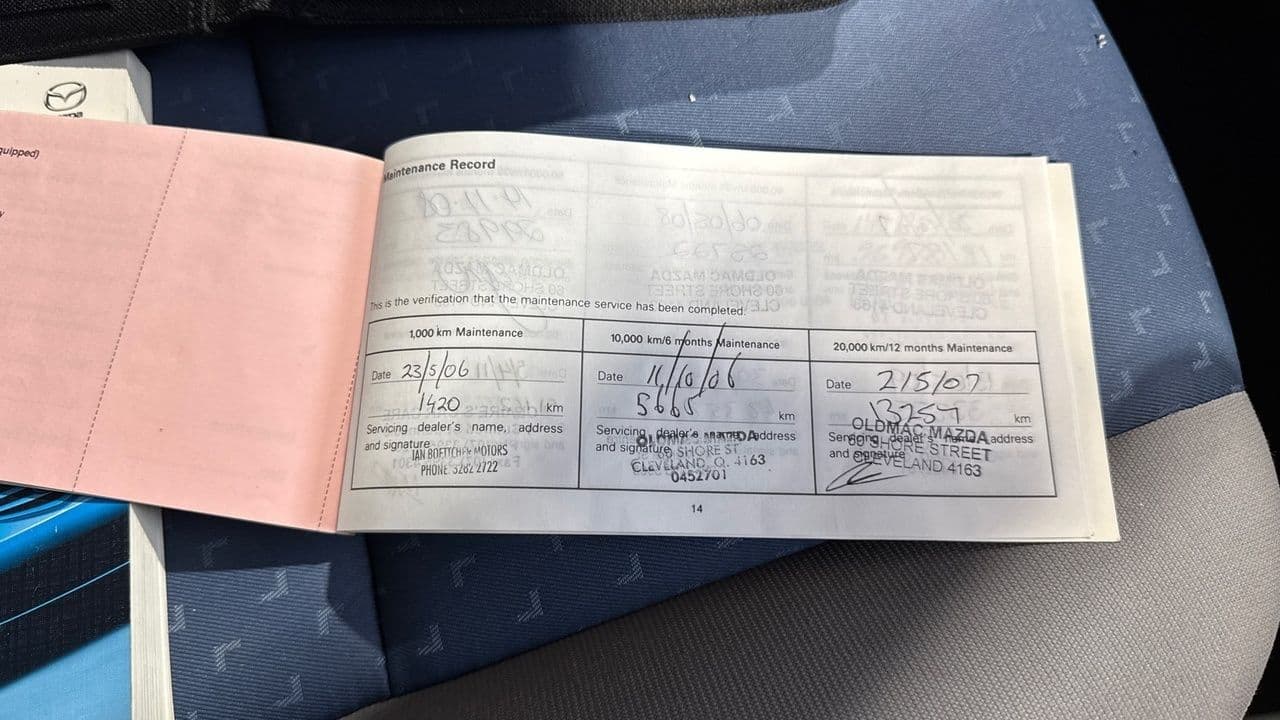 quipped)
Maintenance Record
This is the verification that the maintenance service has been completed.
1,000 km Maintenance
Date 23/5/06
1420 km
Servicing dealer's name, address
and signature
IAN BOETTCHER MOTORS
PHONE 3282 2722
10,000 km/6 months Maintenance
Date 11/10/06
5665 km
Servicing dealer's name, address
and signature
SHORE ST
CLEVELAND, Q. 4163
0452701
20,000 km/12 months Maintenance
Date 2/5/07
13257 km
Servicing dealer's name, address
and signature
OLDMAC MAZDA
60 SHORE STREET
CLEVELAND 4163
14